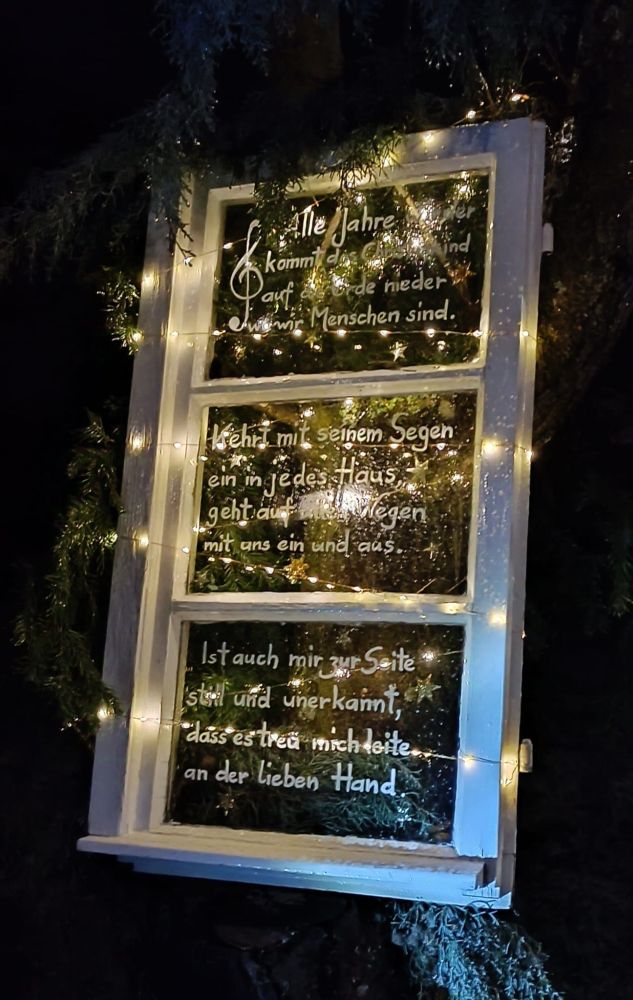 Alle Jahre
kommt das
auf der Erde nieder
wo wir Menschen sind.
Kehrt mit seinem Segen
ein in jedes Haus,
geht auf allen Wegen
mit uns ein und aus.
Ist auch mir zur Seite
still und unerkannt,
dass es treu mich leite
an der lieben Hand.